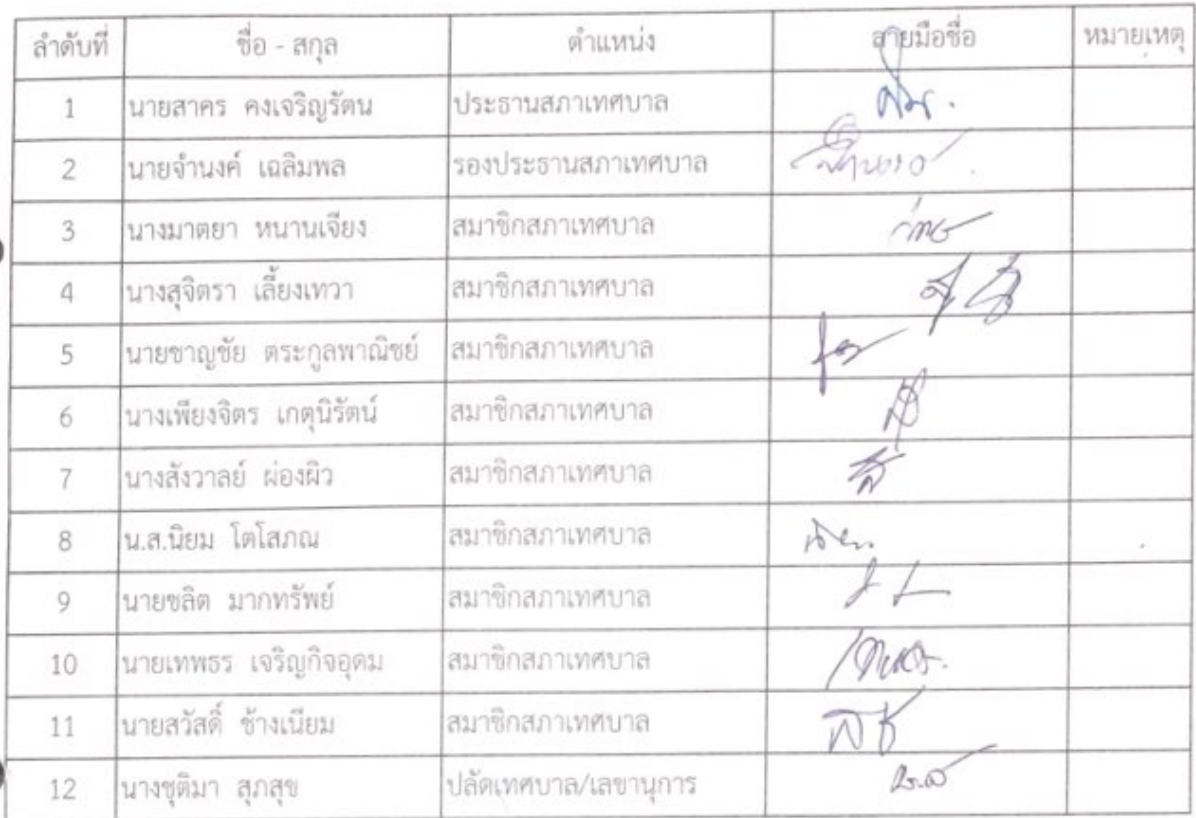 ลำดับที่ ชื่อ - สกุล ตำแหน่ง ลายมือชื่อ หมายเหตุ
1 นายสาคร คงเจริญรัตน ประธานสภาเทศบาล
2 นายจำนงค์ เฉลิมพล รองประธานสภาเทศบาล
3 นางมาตยา หนานเจียง สมาชิกสภาเทศบาล
4 นางสุจิตรา เลี้ยงเทวา สมาชิกสภาเทศบาล
5 นายชาญชัย ตระกูลพาณิชย์ สมาชิกสภาเทศบาล
6 นางเพียงจิตร เกตุนิรัตน์ สมาชิกสภาเทศบาล
7 นางสังวาลย์ ผ่องผิว สมาชิกสภาเทศบาล
8 น.ส.นิยม โตโสภณ สมาชิกสภาเทศบาล
9 นายชลิต มากทรัพย์ สมาชิกสภาเทศบาล
10 นายเทพธร เจริญกิจอุดม สมาชิกสภาเทศบาล
11 นายสวัสดิ์ ช้างเนียม สมาชิกสภาเทศบาล
12 นางชุติมา สุภสุข ปลัดเทศบาล/เลขานุการ